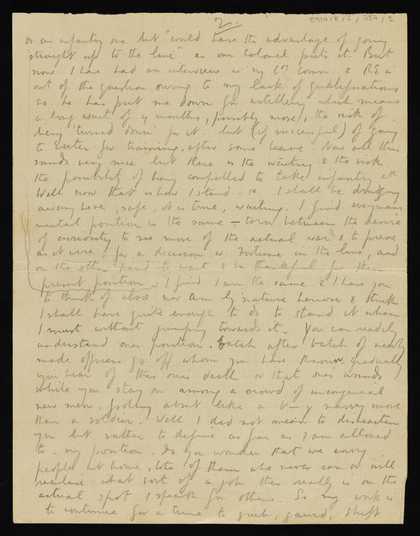 2.
or an infantry one but "would have the advantage of going
straight up to the line" as our Colonel puts it. But
now I have had an interview is my Coy Comm. & R.E. is
out of the question owing to my lack of qualifications
so he has put me down for artillery which means
a long wait of 4 months, possibly more, the risk of
being turned down for it but (if successful) of going
to Exeter for training, after some leave. Now all this
sounds very nice but there is the waiting & the risk
the possibility of being compelled to take infantry etc
Well now that is how I stand. I shall be
away here, safe, it is true, waiting. I find my own
mental position is the same – torn between the desire
of curiosity to see more of the actual war & to prove,
as it were, for a decision is Fortune in the line, and
on the other hand to wait & be thankful for this
present position. I find I am the same & I have you
to think of also nor am I by nature heroic & think
I shall have quite enough to do to stand it when
I must without jumping towards it. You can readily
understand our position. Batch after batch of newly
made officers go off whom you have known, gradually
you hear of this one's death or that one's wounds
while you stay on among a crowd of uncongenial
new men, fooling about like a navvy more
than a soldier. Well I did not mean to dishearten
you but rather to define as far as I am allowed
to my position. Do you wonder that we envy
people at home, lots of them who never can or will
realise what sort of a job this really is on the
actual spot. I speak for others. So my work is
to continue for a time to grub, guard, shift